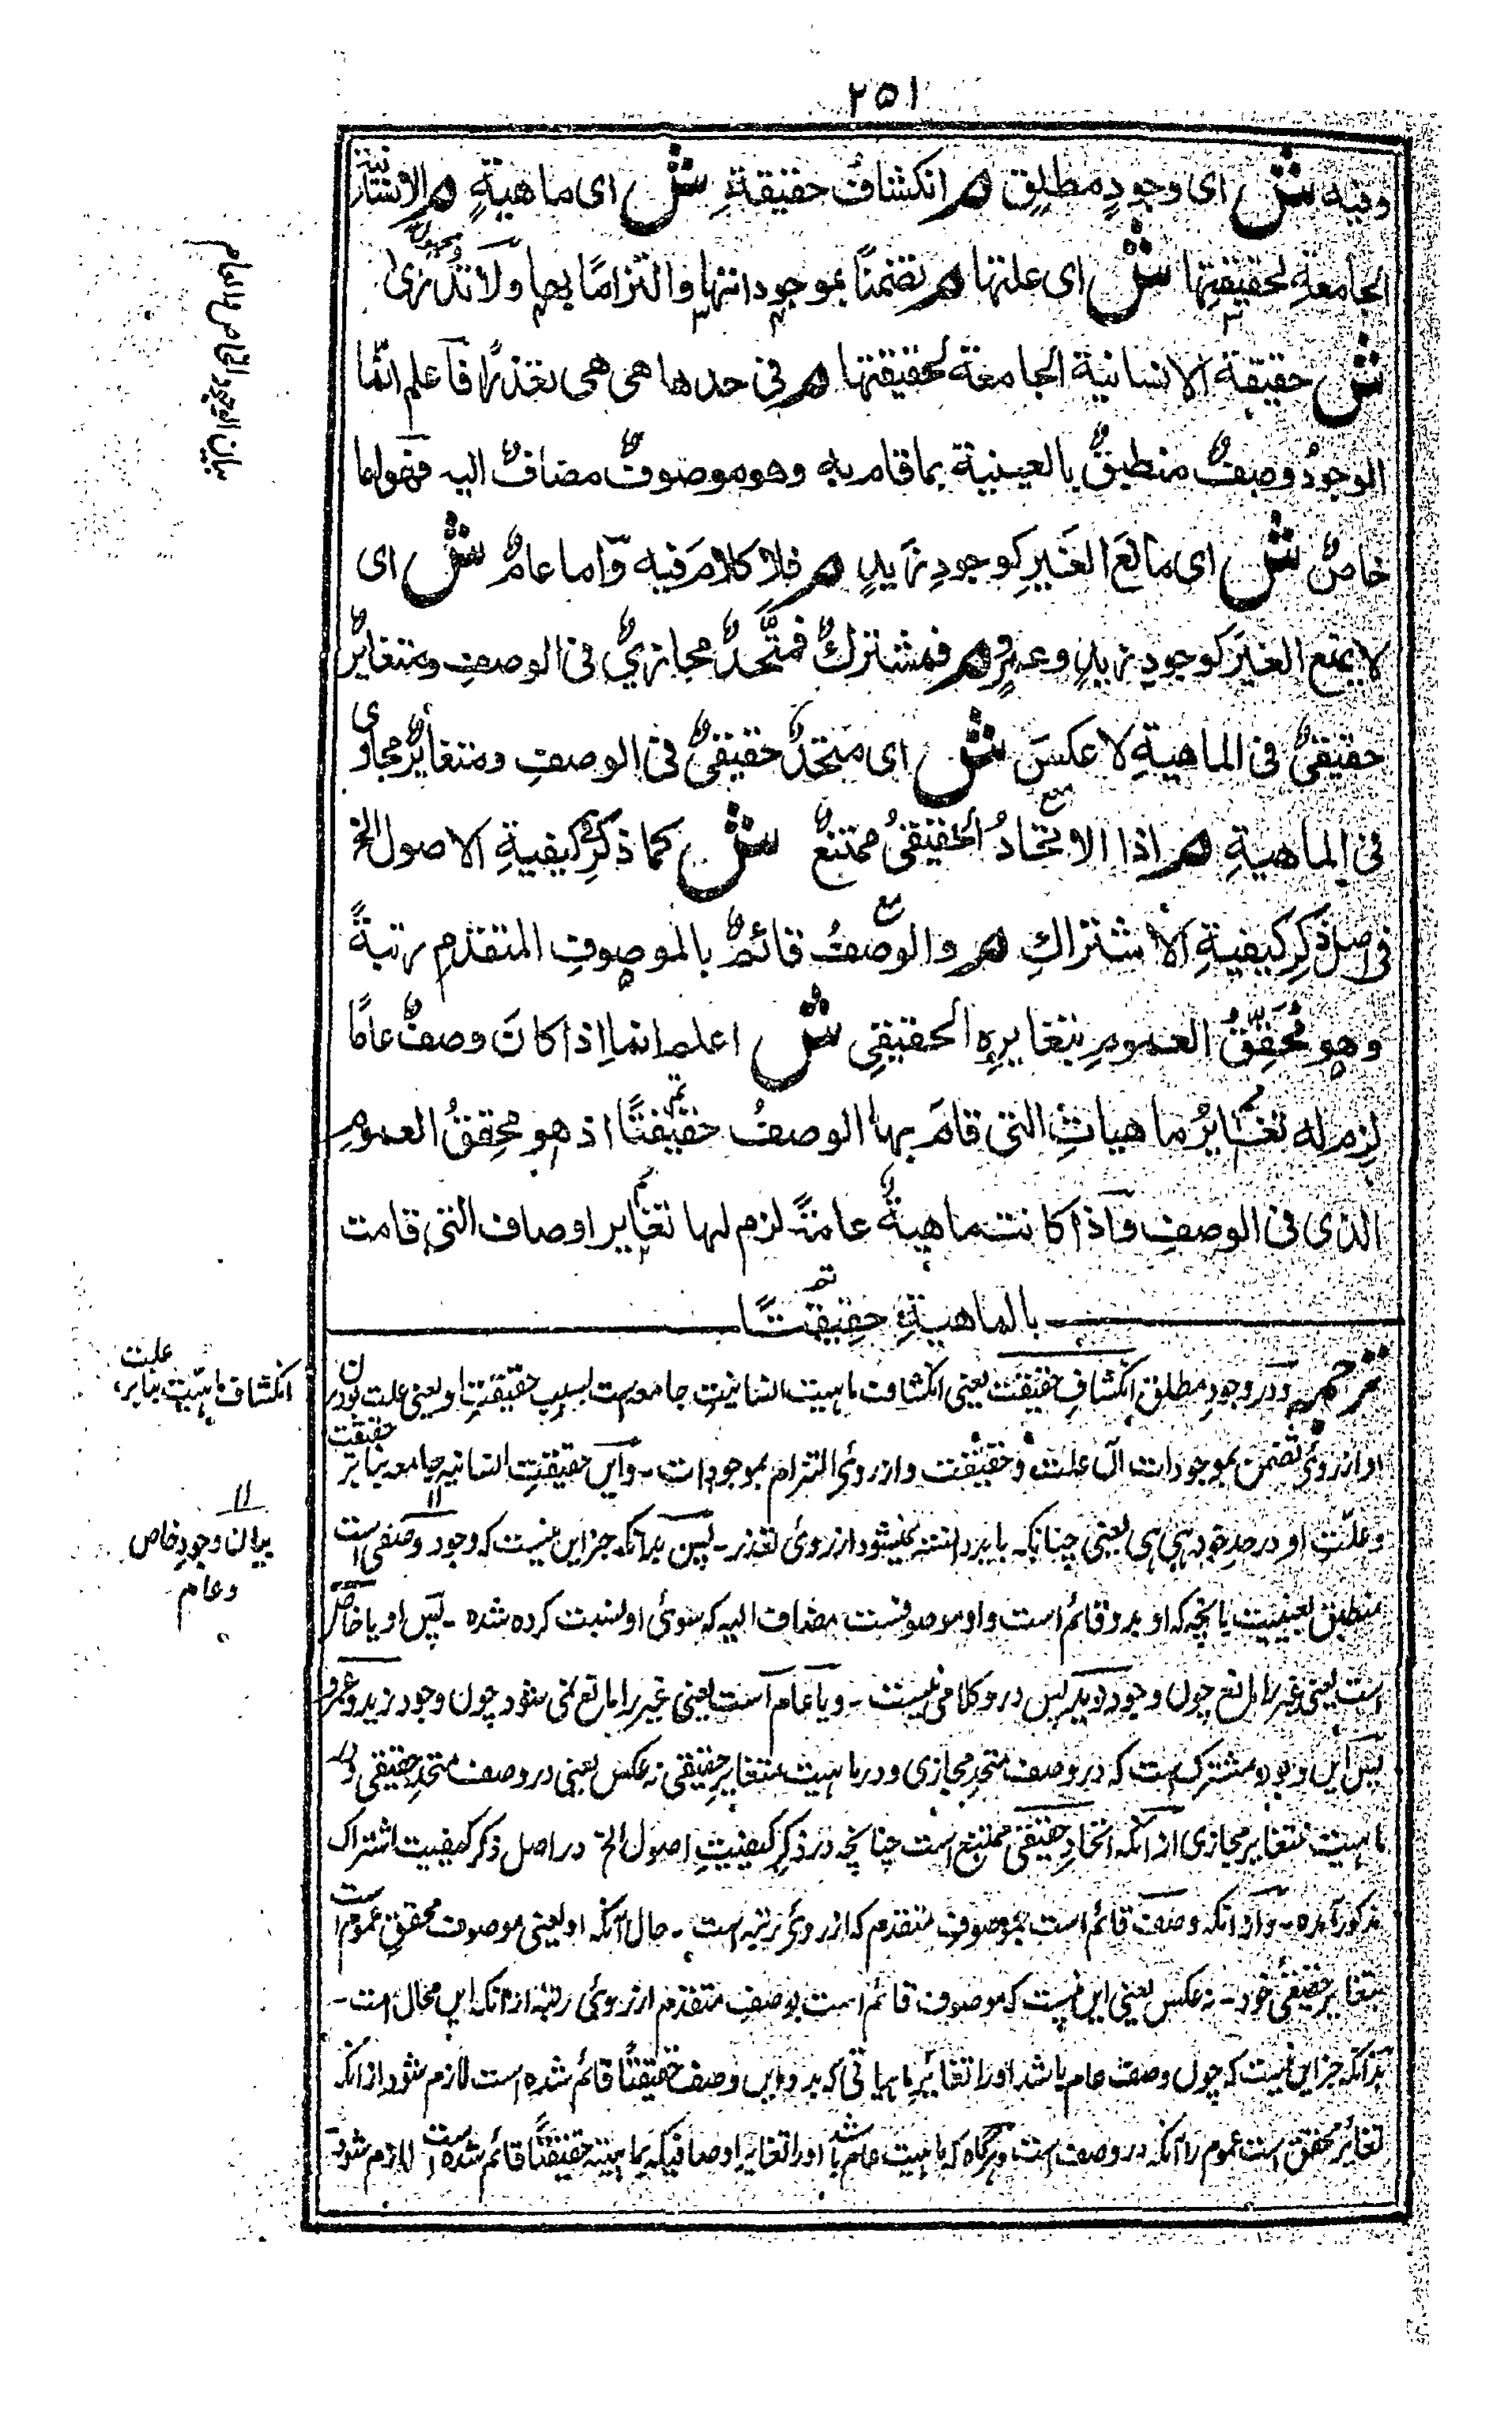 ۲۵۱
وفيه ش اى وجودٍ مطلقٍ هر انكشافُ حقيقةِ ش اى ماهيةٍ هر الانسانية
الجامعةِ لحقيقتِها ش اى علتها هر تضمنًا بموجوداتها والتزامًا بها ولا تدرى
ش حقيقة الانسانية الجامعة لحقيقتها هر فى حدها هى هى تعذرًا فاعلم انما
الوجودُ وصفٌ منطبقٌ بالعينية بما قام به وهو موصوفٌ مضافٌ اليه فهو اما
خاصٌ ش اى مانع الغَيرِ كوجودِ زيدٍ هر فلا كلامَ فيه وّاما عامٌ ش اى
لا يمنع الغيرَ كوجودِ زيدٍ وعمرٍو هر فمشتركٌ فمتَّحدٌ مجازيٌ فى الوصفِ ومتغايرٌ
حقيقىٌ فى الماهيةِ لا عكسَ ش اى متحدٌ حقيقىٌ فى الوصفِ ومتغايرٌ مجازى
فى الماهيةِ هر اذا الاتحادُ الحقيقىُ ممتنعٌ ش كما ذكر كيفيةِ الاصول الخ
فى اصل ذكرِ كيفيةِ الاشتراكِ هر والوصفُ قائمٌ بالموصوفِ المتقدمِ رتبةً
وهو مُحقِقُ العمومِ بتغايرِهِ الحقيقىِ ش اعلم انما اذا كانَ وصفٌ عامًا
لزم له تغايرُ ماهياتِ التى قامَ بها الوصفُ حقيقتًا اذ هو محقِقُ العمومِ
الذى فى الوصفِ واذا كانت ماهيةٌ عامةً لزم لها تغاير اوصاف التى قامت
بالماهيةِ حقيقتًا
ترجمه ودر وجودِ مطلق انكشافِ حقيقت يعنى انكشافِ ماهيت انسانيت جامعه ست بسبب حقيقتِ او يعنى علت بودن
او از روئ تضمن بموجودات آن علت وحقيقت واز روئ التزام بموجودات ـ واين حقيقتِ انسانيه جامعه بنابر حقيقت
وعلّتِ او در حدِ خود هى هى يعنى چنانكه بايد دانسته نميشود از روئ تعذر ـ پس بدانكه جز اين نيست كه وجود وصفى است
منطبق بعينيت بانچه كه او بدو قائم است واو موصوفست مضاف اليه كه سوئ او نسبت كرده شده ـ پس او يا خاص
است يعنى غير را مانع چون وجود زيد پس درو كلامى نيست ـ ويا عام است يعنى غير را مانع نمى شود چون وجود زيد وعمرو
پس اين وجود مشترك ست كه در وصف متحدِ مجازى ودر ماهيت متغايرِ حقيقى نه عكس يعنى در وصف متحدِ حقيقى ودر
ماهيت متغاير مجازى از آنكه اتحادِ حقيقى ممتنع است چنانچه در ذكرِ كيفيتِ اصول الخ در اصل ذكر كيفيت اشتراك
مذكور آمده ـ واز انكه وصف قائم است بموصوفِ متقدم كه از روئ رتبه ست ـ حال آنكه او يعنى موصوف محققِ عموم است
بتغايرِ حقيقئ خود ـ نه عكس يعنى اين نيست كه موصوف قائم است بوصفِ متقدم از روئ رتبه از انكه اين محال است ـ
بدانكه جز اين نيست كه چون وصف عام باشد اورا تغايرِ ماهياتى كه بدو اين وصف حقيقتًا قائم شده است لازم شود از انكه
تغاير محقق است عموم را آنكه در وصف است وهرگاه كه ماهيت عام باشد اورا تغايرِ اوصافيكه بماهيت حقيقتًا قائم شده است لازم شود
بيان الوجود الخاص والعام
انكشاف ماهيت بنابر علت
بيان وجودِ خاص
وعام